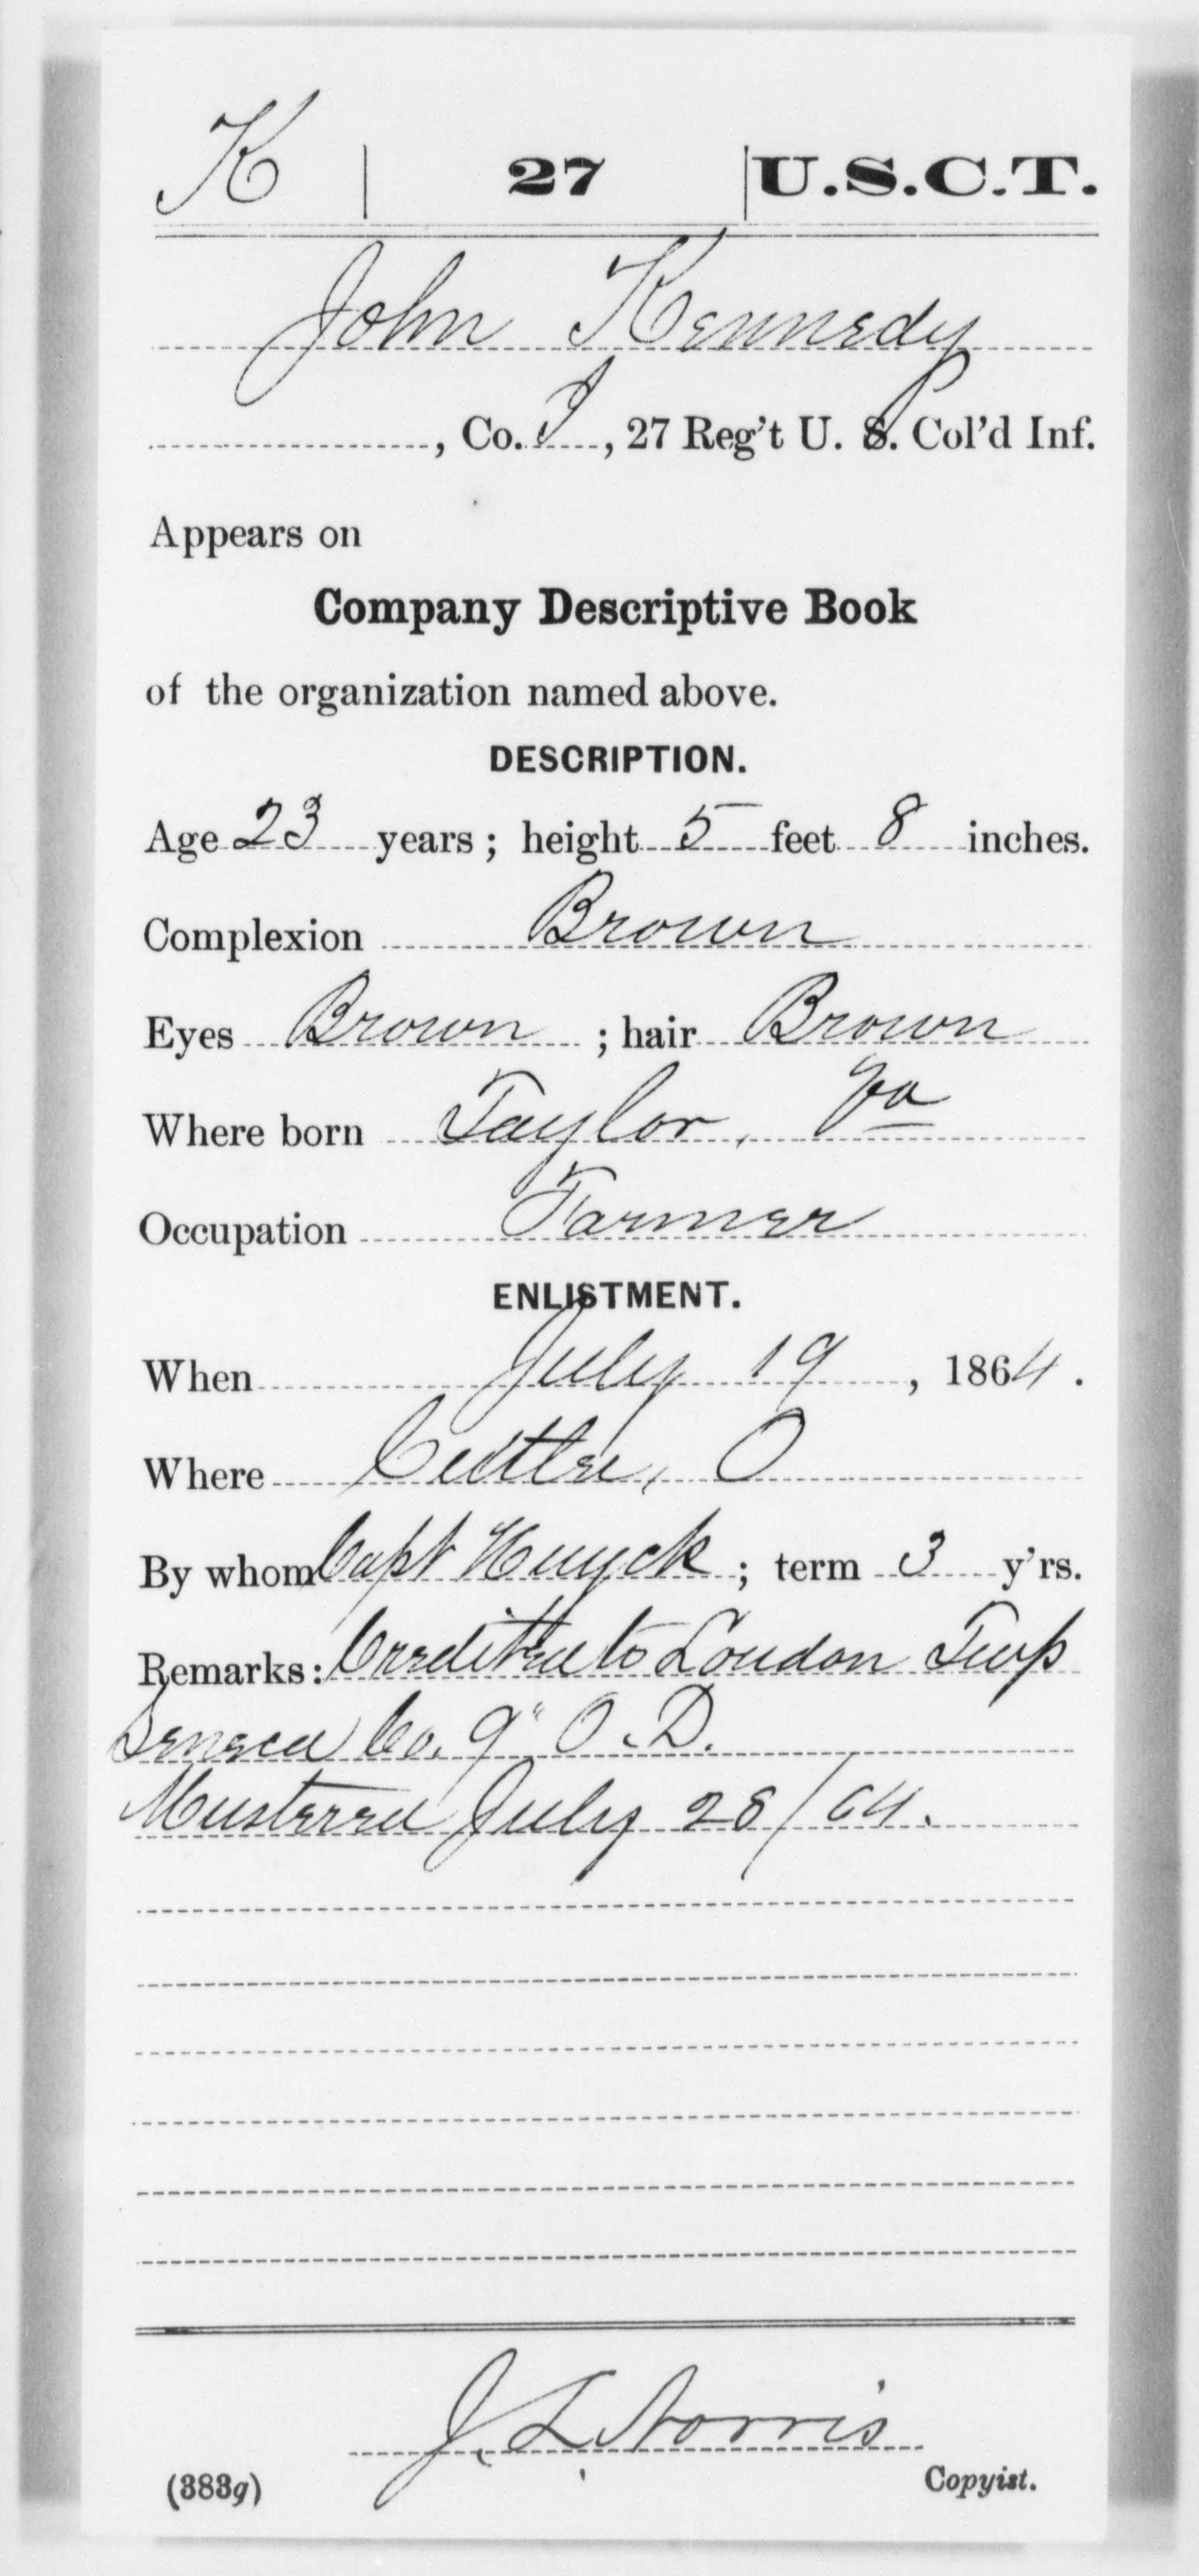 K | 27 | U.S.C.T.
John Kennedy
, Co. I, 27 Reg't U. S. Col'd Inf.
Appears on
Company Descriptive Book
of the organization named above.
DESCRIPTION.
Age 23 years; height 5 feet 8 inches.
Complexion Brown
Eyes Brown; hair Brown
Where born Taylor, Va
Occupation Farmer
ENLISTMENT.
When July 19, 1864.
Where O
By whom Capt Huyck; term 3 y'rs.
Remarks: Credited to Loudon Twp
Seneca Co. 9" O. D.
Mustered July 28/64.
J. L. Norris
(383g) Copyist.